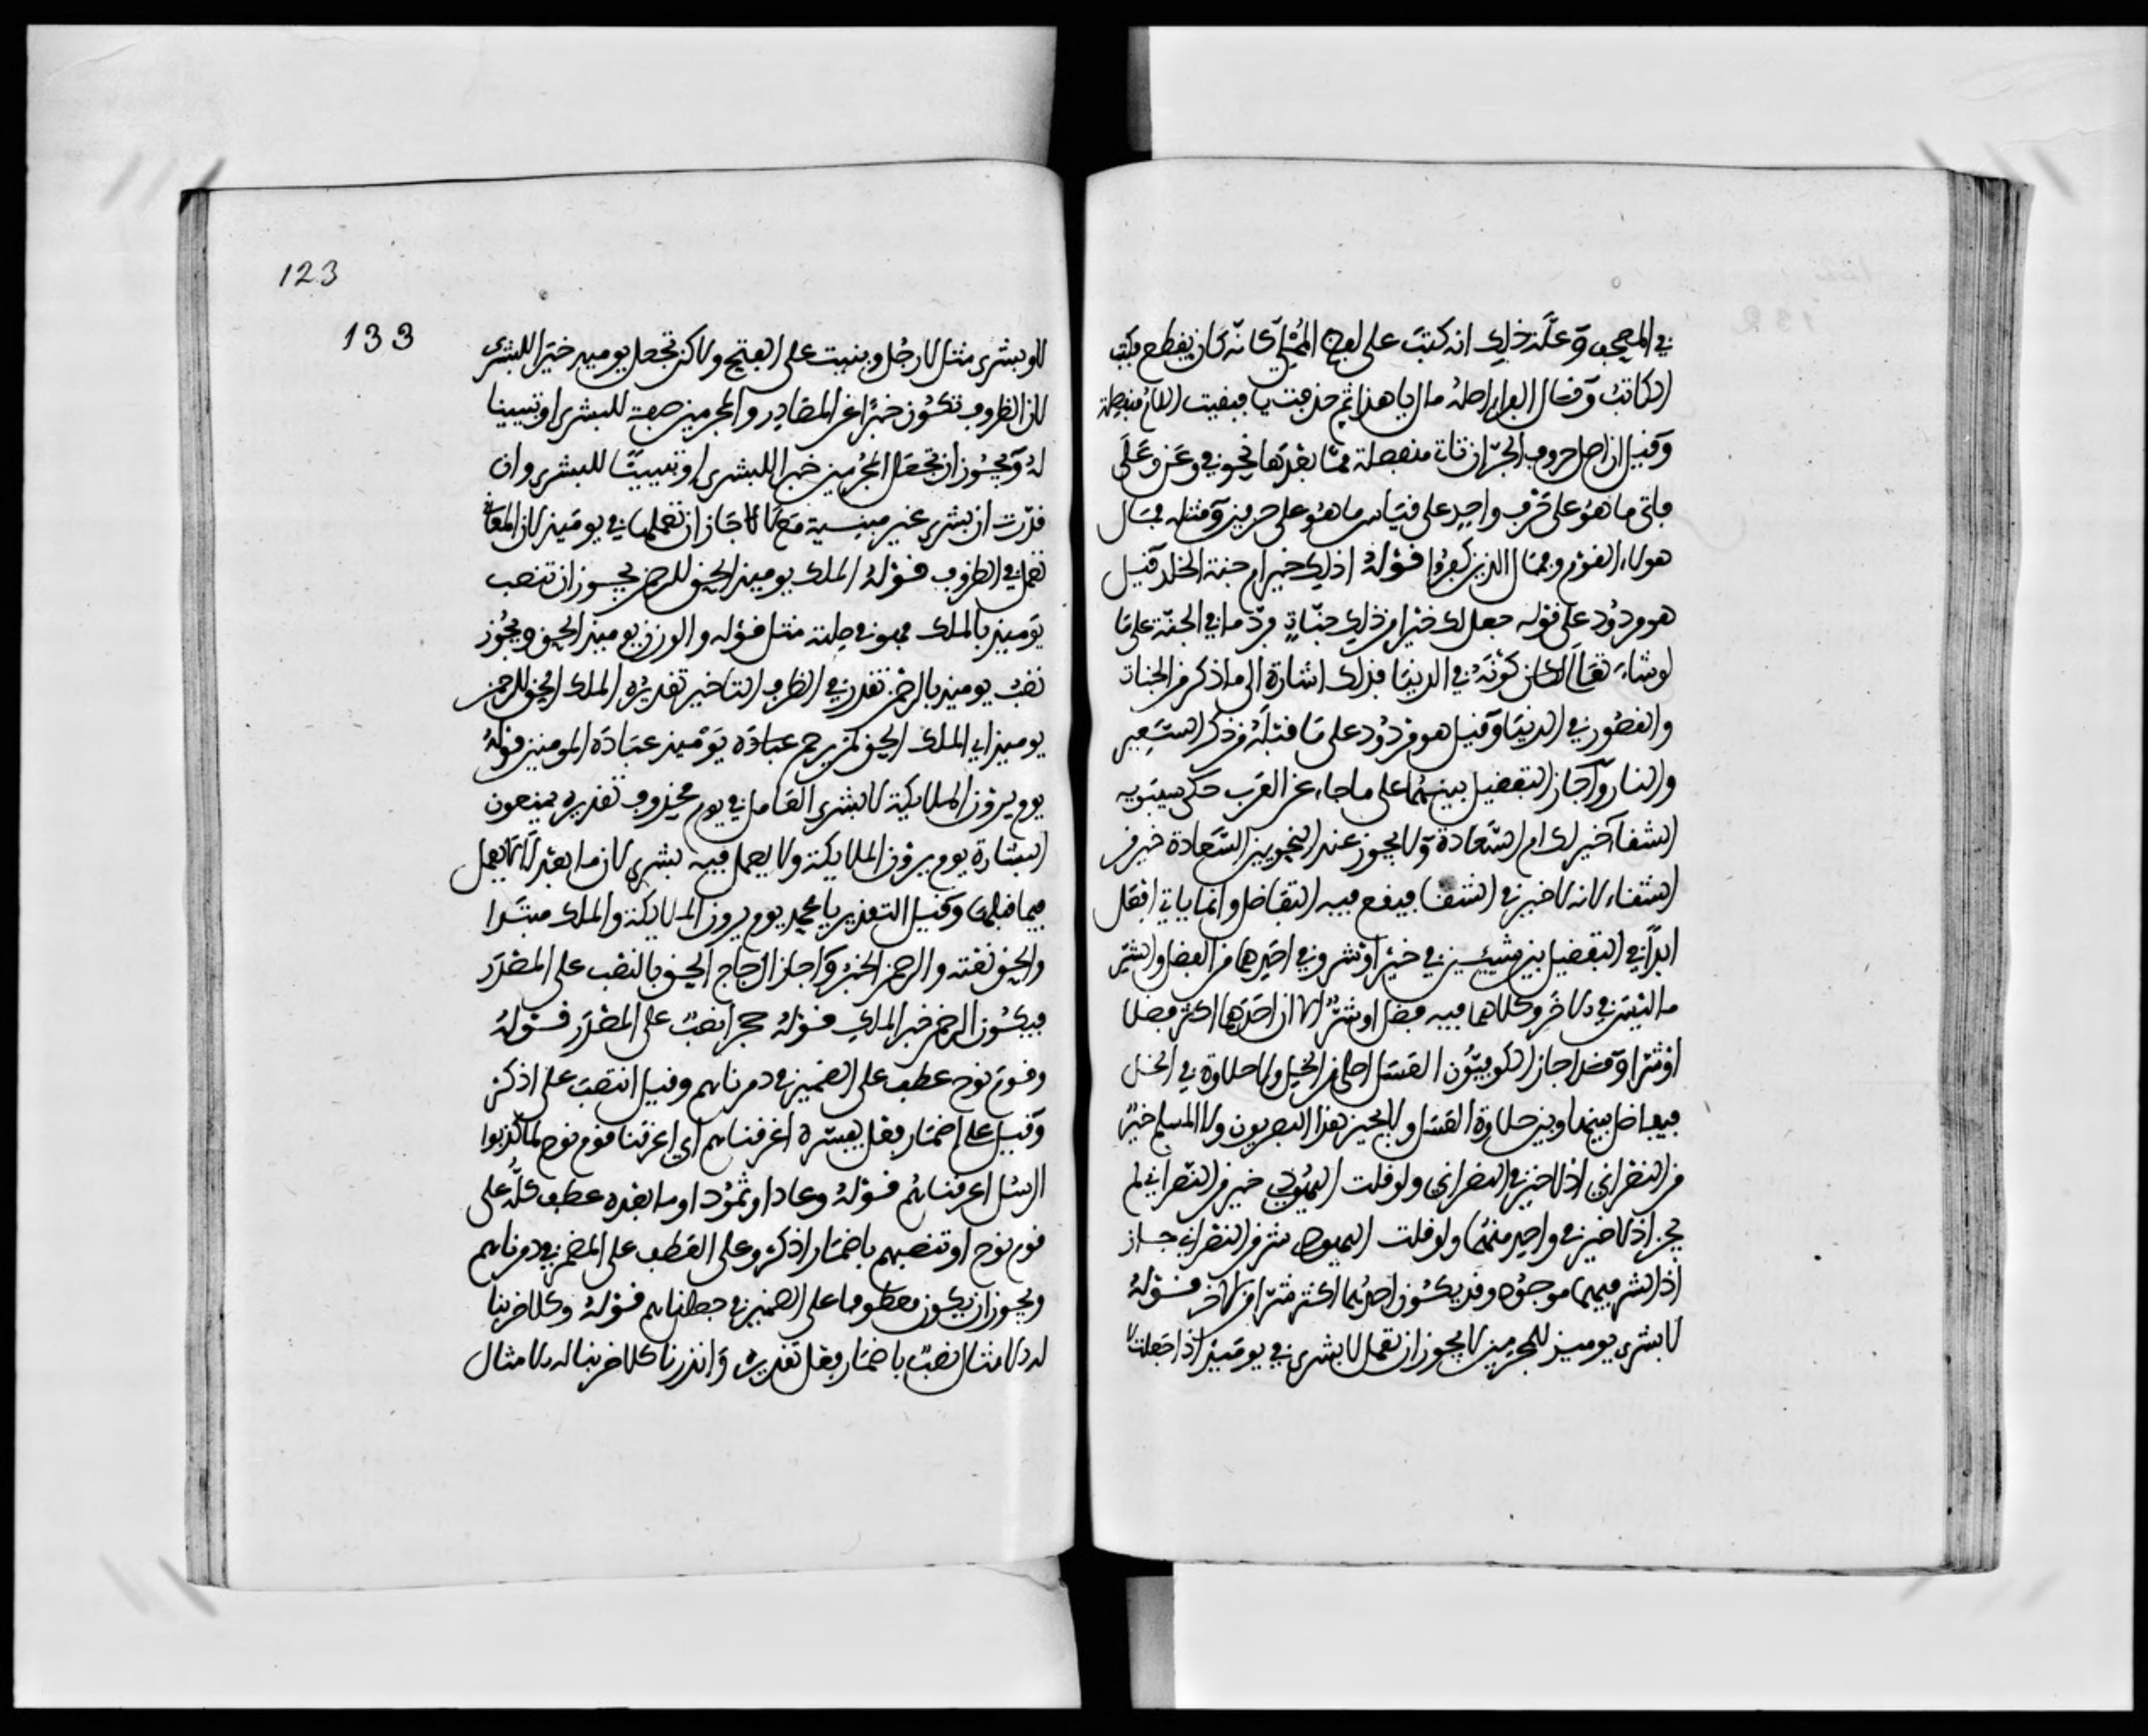 في المصحف وعلة ذلك انه كتبت على لفظ المملي كانه كان يقطع فكتب
الكاتب وقال الفراء اصله ما بال هذا ثم حذفت با فبقيت اللام منفصلة
وقيل ان اصل حروف الجر ان تات منفصلة مما بعدها نحو في وعن وعلى
فاتى ما هو على حرف واحد على قياس ما هو على حرفين ومثله فمال
هولاء القوم وفمال الذين كفروا قوله اذلك خير ام جنة الخلد قيل
هو مردود على قوله جعل لك خيرا من ذلك جنات فرد ما في الجنة على ما
لو شاء تعالى لكان كونه في الدنيا فذلك اشارة الى ما ذكر من الجنات
والقصور في الدنيا وقيل هو مردود على ما قبله من ذكر السعير
والنار وجاز التفضيل بينهما على ما جاء عن العرب حكى سيبويه
الشقا خير لك ام السعادة ولا يجوز عند النحويين السعادة خير من
الشقاء لانه لا خير في الشقا فيقع فيه التفاضل وانما ياتي افعل
ابدا في التفضيل بين شيئين في خير او شر وفي احدهما من الفضل والشر
ما ليس في الاخر وكلاهما فيه فضل او شر الا ان احدهما اكثر فضلا
او شرا وقد اجاز الكوفيون العسل احلى من الخل ولا حلاوة في الخل
فيفاضل بينها وبين حلاوة العسل ولا يجيز هذا البصريون ولا المسلم خير
من النصراني اذ لا خير في النصراني ولو قلت اليهودي خير من النصراني لم
يجز اذ لا خير في واحد منهما ولو قلت اليهودي شر من النصراني جاز
اذ الشر فيهما موجود وقد يكون احدهما اكثر شرا من الاخر قوله
لا بشرى يوميذ للمجرمين لا يجوز ان تعمل لا بشرى في يوميذ اذا جعلت لا
123
133
لا وبشرى مثل لا رجل وبنيت على الفتح ولاكن تجعل يوميذ خبرا للبشرى
لان الظروف تكون خبرا عن المصادر والمجرمين صفة للبشرى او تبيينا
له ويجوز ان تجعل المجرمين خبرا للبشرى او تبيينا للبشرى وان
قدرت ان بشرى غير مبنية مع لا جاز ان تعملها في يوميذ لان المعاني
تعمل في الظروف قوله الملك يوميذ الحق للرحمن يجوز ان تنصب
يوميذ بالملك فهو في صلته مثل قوله والوزن يوميذ الحق ويجوز
نصب يوميذ بالرحمن تقدر في الظرف التاخير تقديره الملك الحق للرحمن
يوميذ اي الملك الحق لمن يرحم عباده يوميذ عباده المومنين قوله
يوم يرون الملايكة لا بشرى العامل في يوم محذوف تقديره يمنعون
البشارة يوم يرون الملايكة ولا يعمل فيه بشرى لان ما بعد لا لا يعمل
فيما قبلها وقيل التقدير يا محمد يوم يرون الملايكة والملك مبتدا
والحق نعته والرحمن الخبر واجاز الزجاج الحق بالنصب على المصدر
فيكون الرحمن خبر الملك قوله حجرا نصب على المصدر قوله
وقوم نوح عطف على الضمير في دمرناهم وقيل انتصب على اذكر
وقيل على اضمار فعل يفسره اغرقناهم اي اغرقنا قوم نوح لما كذبوا
الرسل اغرقناهم قوله وعادا وثمودا وما بعده عطف كله على
قوم نوح او تنصبهم باضمار اذكر وعلى العطف على المضمر في دمرناهم
ويجوز ان يكون معطوفا على الضمير في جعلناهم قوله وكلا ضربنا
له الامثال نصب باضمار فعل تقديره وانذرنا كلا ضربنا له الامثال